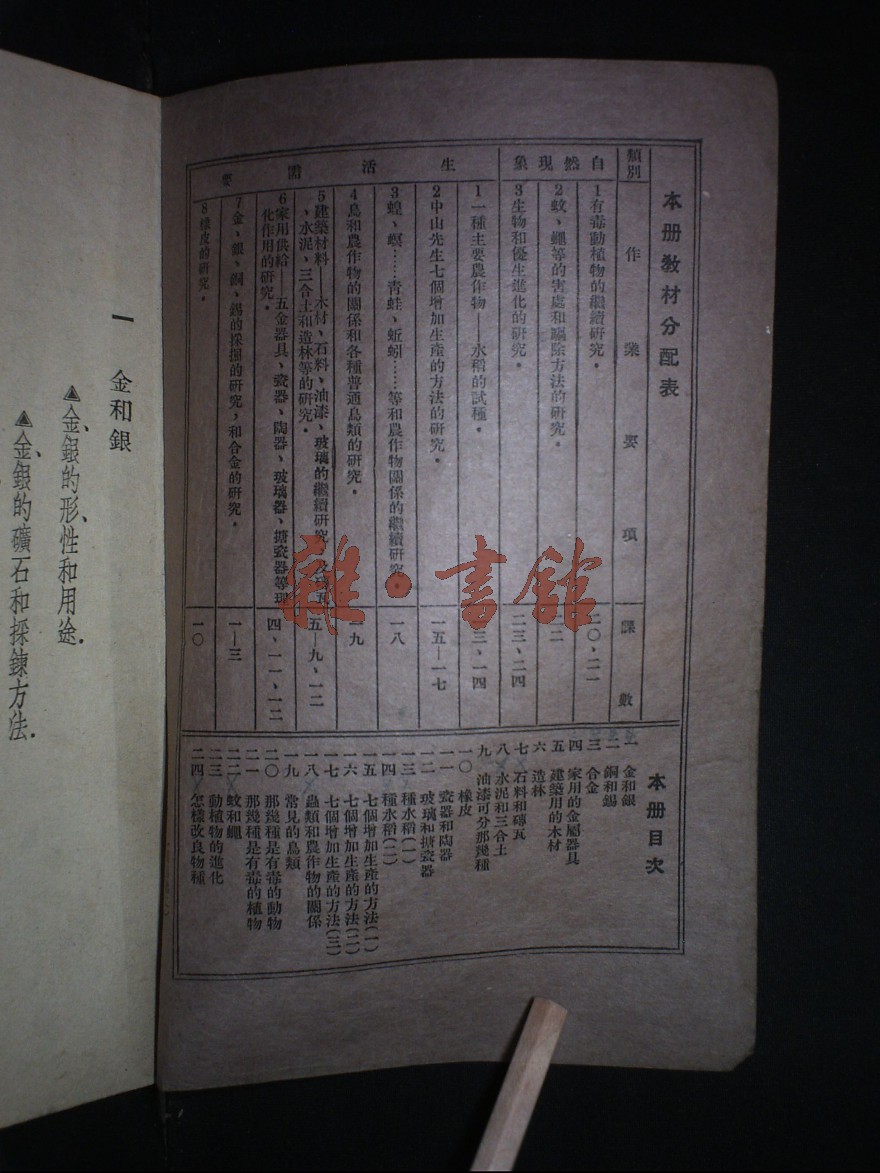 本册教材分配表
類別
作業要項
課數
自然現象
1有毒動植物的繼續研究。
二〇、二一
2蚊、蠅等的害處和驅除方法的研究。
二二
3生物和優生進化的研究。
二三、二四
生活需要
1一種主要農作物——水稻的試種。
三、一四
2中山先生七個增加生產的方法的研究。
一五—一七
3蝗、螟……青蛙、蚯蚓……等和農作物關係的繼續研究。
一八
4鳥和農作物的關係和各種普通鳥類的研究。
一九
5建築材料——木材、石料、油漆、玻璃的繼續研究
、水泥、三合土和造林等的研究。
五—九、一二
6家用供給——五金器具、瓷器、陶器、玻璃器、搪瓷器等理
化作用的研究。
四、一一、一二
7金、銀、銅、錫的採掘的研究，和合金的研究。
一—三
8橡皮的研究。
一〇
本册目次
一 金和銀
二 銅和錫
三 合金
四 家用的金屬器具
五 建築用的木材
六 造林
七 石料和磚瓦
八 水泥和三合土
九 油漆可分那幾種
一〇 橡皮
一一 瓷器和陶器
一二 玻璃和搪瓷器
一三 種水稻(一)
一四 種水稻(二)
一五 七個增加生產的方法(一)
一六 七個增加生產的方法(二)
一七 七個增加生產的方法(三)
一八 蟲類和農作物的關係
一九 常見的鳥類
二〇 那幾種是有毒的動物
二一 那幾種是有毒的植物
二二 蚊和蠅
二三 動植物的進化
二四 怎樣改良物種
一 金和銀
▲金、銀的形、性和用途.
▲金、銀的礦石和採鍊方法.
雜·書館